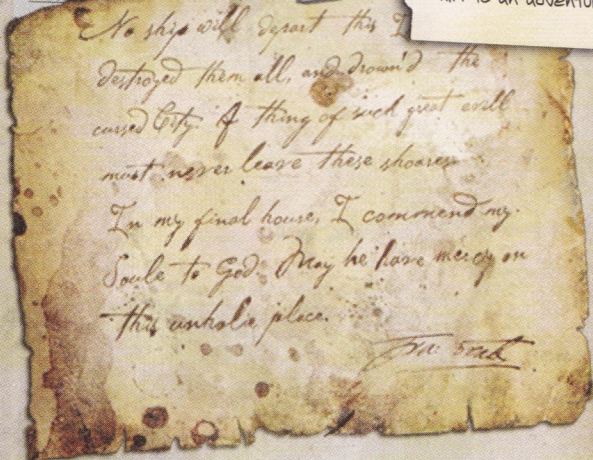 No ship will depart this I
destroyed them all, and drown'd the
cursed City. A thing of such great evill
must never leave these shoares
In my final houre, I commend my
Soule to God. May he have mercy on
this unholie place.